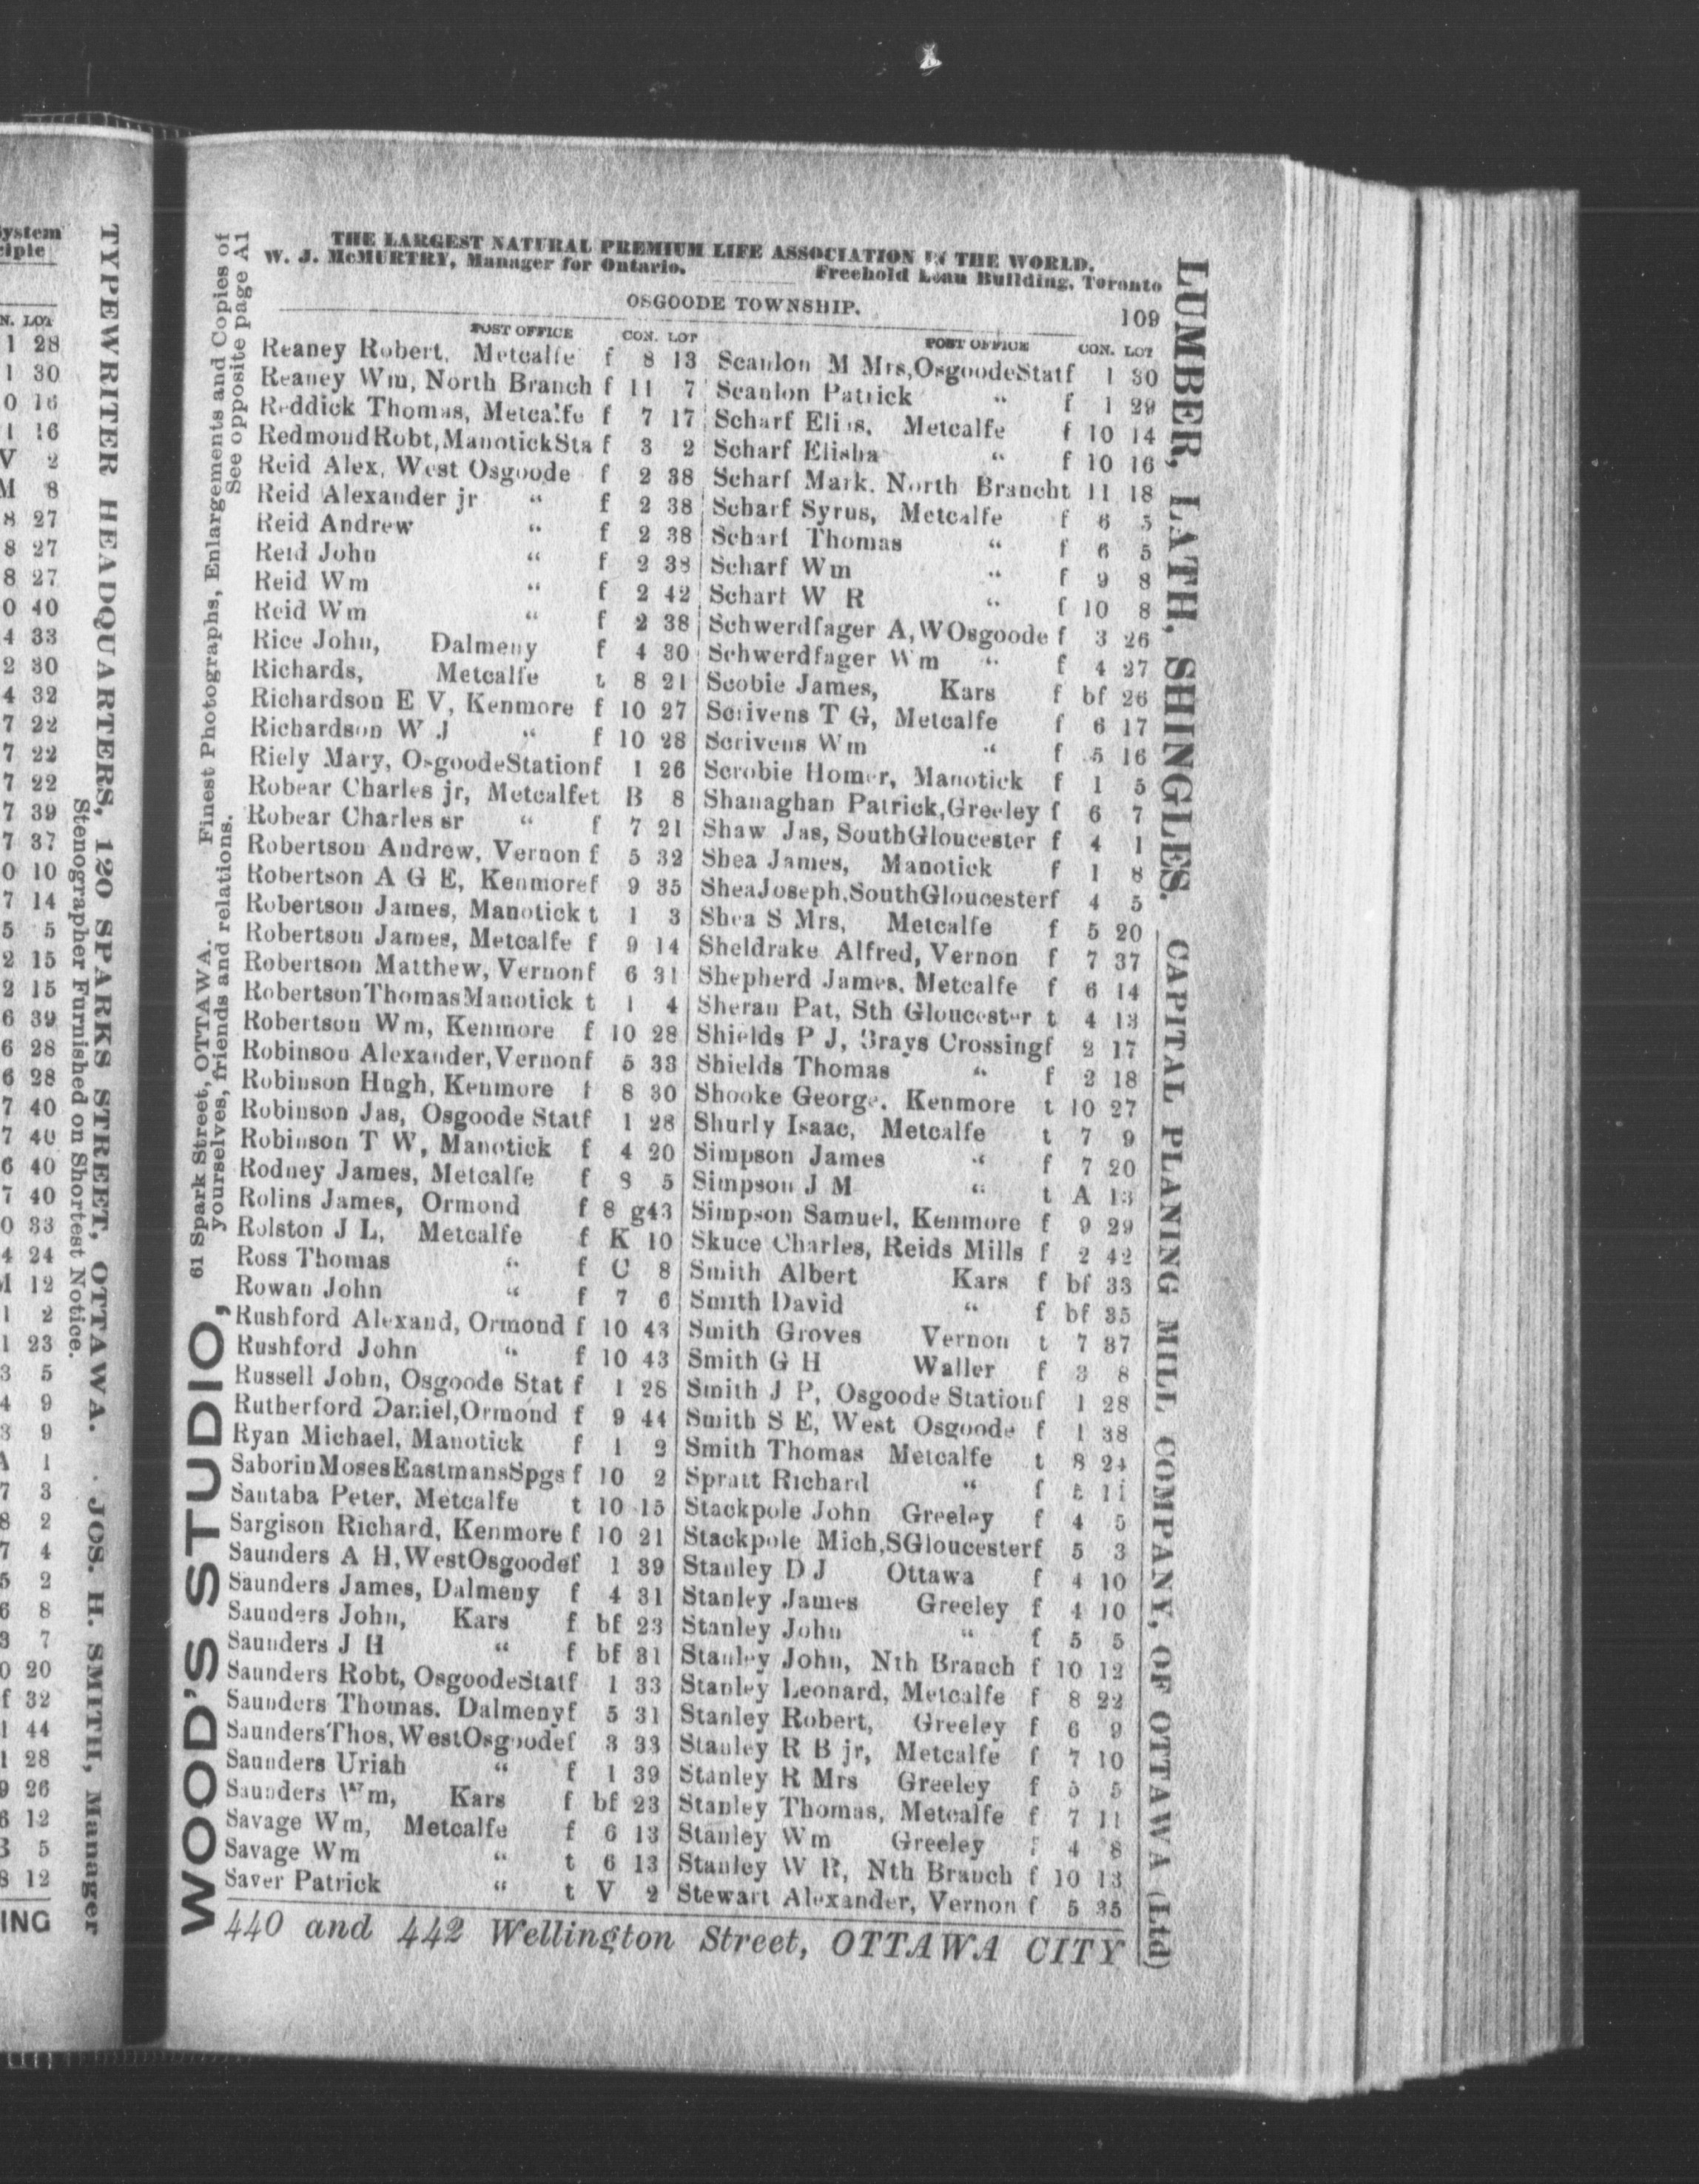 ystem
ciple
N. LOT
1 28
1 30
0 16
1 16
V 2
M 8
8 27
8 27
8 27
0 40
4 33
2 30
4 32
7 22
7 22
7 22
7 39
7 37
0 10
7 14
5 5
2 15
2 15
6 39
6 28
6 28
7 40
7 40
6 40
7 40
0 33
4 24
M 12
1 2
1 23
3 5
4 9
3 9
A 1
7 3
8 2
7 4
5 2
6 8
3 7
0 20
f 32
1 44
1 28
9 26
6 12
3 5
8 12
ING
TYPEWRITER HEADQUARTERS, 120 SPARKS STREET, OTTAWA. JOS. H. SMITH, Manager
Stenographer Furnished on Shortest Notice.
WOOD'S STUDIO, 61 Spark Street, OTTAWA. Finest Photographs, Enlargements and Copies of
yourselves, friends and relations. See opposite page A1
THE LARGEST NATURAL PREMIUM LIFE ASSOCIATION IN THE WORLD.
W. J. McMURTRY, Manager for Ontario. Freehold Loan Building, Toronto
OSGOODE TOWNSHIP. 109
POST OFFICE CON. LOT
Reaney Robert, Metcalfe f 8 13
Reaney Wm, North Branch f 11 7
Reddick Thomas, Metcalfe f 7 17
Redmond Robt, Manotick Sta f 3 2
Reid Alex, West Osgoode f 2 38
Reid Alexander jr “ f 2 38
Reid Andrew “ f 2 38
Reid John “ f 2 38
Reid Wm “ f 2 42
Reid Wm “ f 2 38
Rice John, Dalmeny f 4 30
Richards, Metcalfe t 8 21
Richardson E V, Kenmore f 10 27
Richardson W J “ f 10 28
Riely Mary, Osgoode Station f 1 26
Robear Charles jr, Metcalfe t B 8
Robear Charles sr “ f 7 21
Robertson Andrew, Vernon f 5 32
Robertson A G E, Kenmore f 9 35
Robertson James, Manotick t 1 3
Robertson James, Metcalfe f 9 14
Robertson Matthew, Vernon f 6 31
Robertson Thomas Manotick t 1 4
Robertson Wm, Kenmore f 10 28
Robinson Alexander, Vernon f 5 33
Robinson Hugh, Kenmore f 8 30
Robinson Jas, Osgoode Stat f 1 28
Robinson T W, Manotick f 4 20
Rodney James, Metcalfe f 8 5
Rolins James, Ormond f 8 g43
Rolston J L, Metcalfe f K 10
Ross Thomas “ f C 8
Rowan John “ f 7 6
Rushford Alexand, Ormond f 10 43
Rushford John “ f 10 43
Russell John, Osgoode Stat f 1 28
Rutherford Daniel, Ormond f 9 44
Ryan Michael, Manotick f 1 2
Saborin Moses Eastmans Spgs f 10 2
Santaba Peter, Metcalfe t 10 15
Sargison Richard, Kenmore f 10 21
Saunders A H, West Osgoode f 1 39
Saunders James, Dalmeny f 4 31
Saunders John, Kars f bf 23
Saunders J H “ f bf 31
Saunders Robt, Osgoode Stat f 1 33
Saunders Thomas. Dalmeny f 5 31
Saunders Thos, West Osgoode f 3 33
Saunders Uriah “ f 1 39
Saunders Wm, Kars f bf 23
Savage Wm, Metcalfe f 6 13
Savage Wm “ t 6 13
Saver Patrick “ t V 2
POST OFFICE CON. LOT
Scanlon M Mrs, Osgoode Stat f 1 30
Scanlon Patrick “ f 1 29
Scharf Elias, Metcalfe f 10 14
Scharf Elisha “ f 10 16
Scharf Mark. North Branch t 11 18
Scharf Syrus, Metcalfe f 6 5
Scharf Thomas “ f 6 5
Scharf Wm “ f 9 8
Scharf W R “ f 10 8
Schwerdfager A, W Osgoode f 3 26
Schwerdfager Wm “ f 4 27
Scobie James, Kars f bf 26
Scrivens T G, Metcalfe f 6 17
Scrivens Wm “ f 5 16
Scrobie Homer, Manotick f 1 5
Shanaghan Patrick, Greeley f 6 7
Shaw Jas, South Gloucester f 4 1
Shea James, Manotick f 1 8
Shea Joseph, South Gloucester f 4 5
Shea S Mrs, Metcalfe f 5 20
Sheldrake Alfred, Vernon f 7 37
Shepherd James, Metcalfe f 6 14
Sheran Pat, Sth Gloucester t 4 13
Shields P J, Grays Crossing f 2 17
Shields Thomas “ f 2 18
Shooke George, Kenmore t 10 27
Shurly Isaac, Metcalfe t 7 9
Simpson James “ f 7 20
Simpson J M “ t A 13
Simpson Samuel, Kenmore f 9 29
Skuce Charles, Reids Mills f 2 42
Smith Albert Kars f bf 33
Smith David “ f bf 35
Smith Groves Vernon t 7 37
Smith G H Waller f 3 8
Smith J P, Osgoode Station f 1 28
Smith S E, West Osgoode f 1 38
Smith Thomas Metcalfe t 8 24
Spratt Richard “ f 11
Stackpole John Greeley f 4 5
Stackpole Mich, S Gloucester f 5 3
Stanley D J Ottawa f 4 10
Stanley James Greeley f 4 10
Stanley John “ f 5 5
Stanley John, Nth Branch f 10 12
Stanley Leonard, Metcalfe f 8 22
Stanley Robert, Greeley f 6 9
Stanley R B jr, Metcalfe f 7 10
Stanley R Mrs Greeley f 5 5
Stanley Thomas, Metcalfe f 7 11
Stanley Wm Greeley f 4 8
Stanley W R, Nth Branch f 10 13
Stewart Alexander, Vernon f 5 35
440 and 442 Wellington Street, OTTAWA CITY
LUMBER, LATH, SHINGLES. CAPITAL PLANING MILL COMPANY, OF OTTAWA (Ltd)